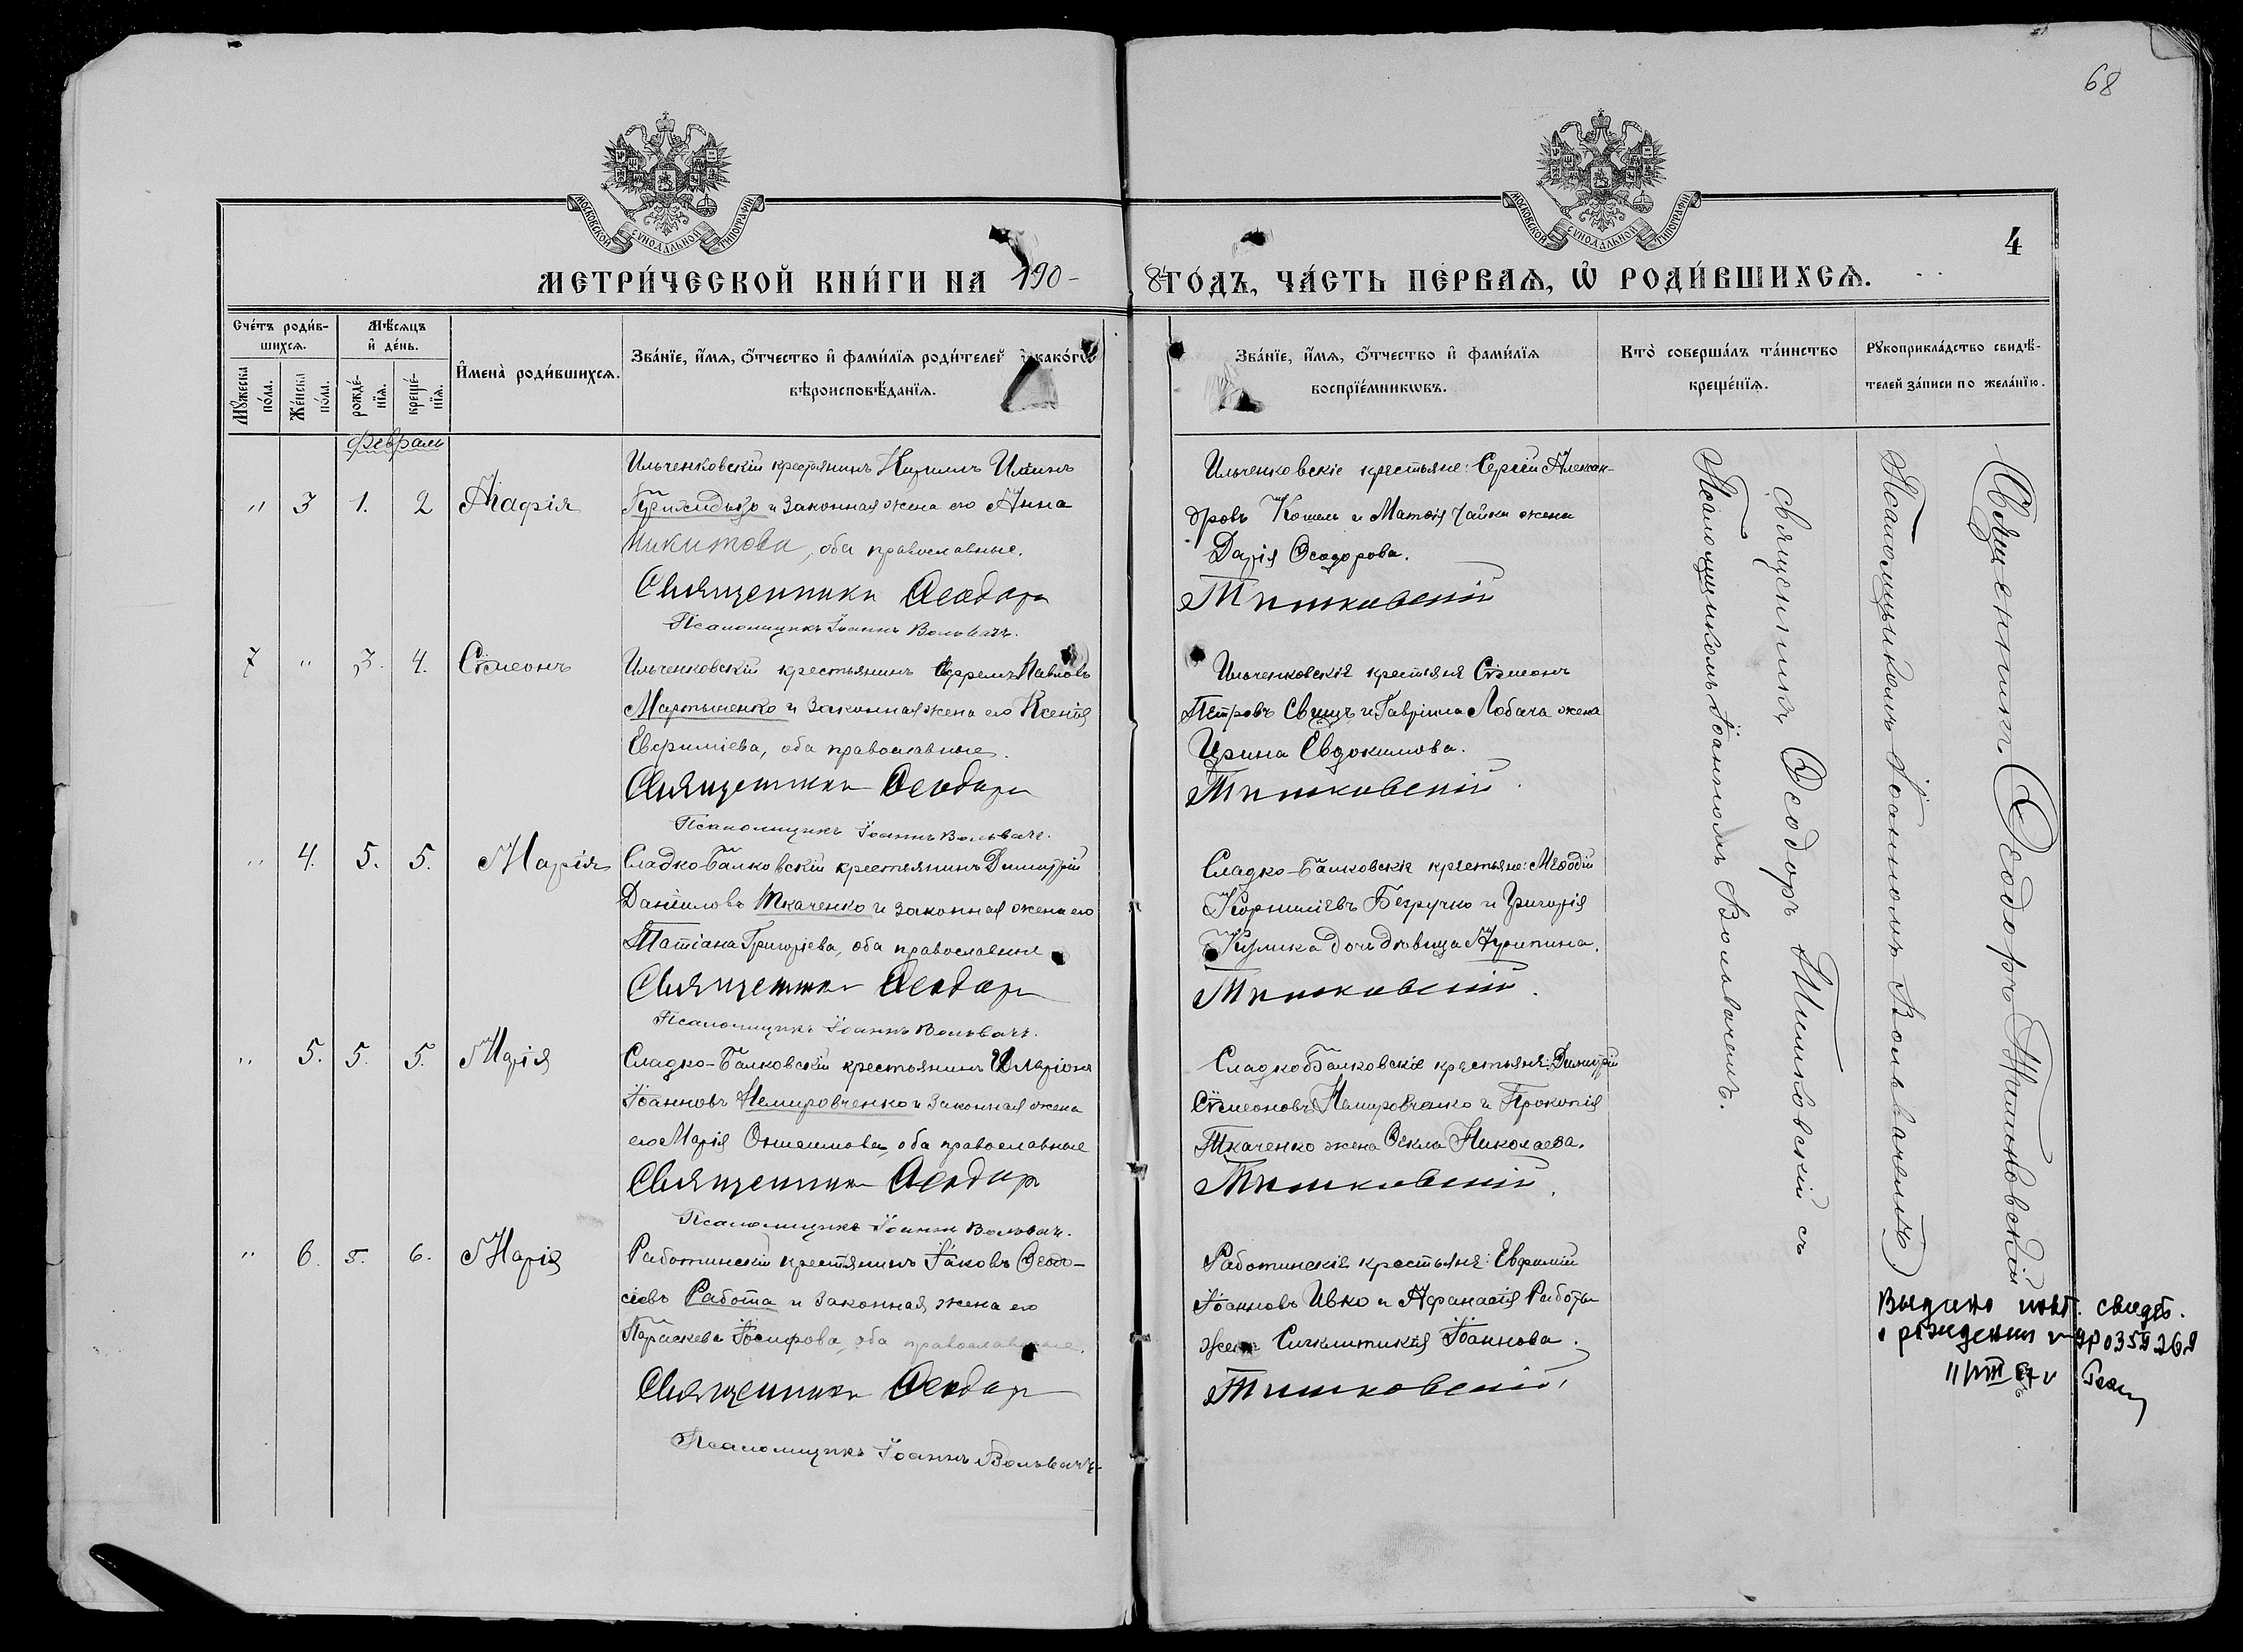 68
МОСКОВСКОЙ СѴНОДАЛЬНОЙ ТИПОГРАФІИ
МОСКОВСКОЙ СѴНОДАЛЬНОЙ ТИПОГРАФІИ
4
МЕТРИ́ЧЕСКОЙ КНИ́ГИ НА 190-
8 ГО́ДЪ, ЧА́СТЬ ПЕ́РВАѦ, Ѡ҆ РОДИ́ВШИХСѦ.
Сче́тъ роди́в-
шихсѧ.
Мꙋжеска по́ла.
Же́нска по́ла.
Мѣ́сѧцъ
и҆ де́нь.
рожде́-
нїѧ.
креще́-
нїѧ.
И҆мена̀ роди́вшихсѧ.
Зва́нїе, и҆́мѧ, ѻ҆́тчество и҆ фами́лїѧ роди́телей и҆ како́гѡ
вѣроисповѣ́данїѧ.
Зва́нїе, и҆́мѧ, ѻ҆́тчество и҆ фами́лїѧ
воспрїе́мникѡвъ.
Кто̀ соверша́лъ та́инство
креще́нїѧ.
Рꙋкоприкла́дство свидѣ́-
телей за́писи по жела́нїю.
февраль
" 3 1. 2 Агафія
Ильченковскій крестьянинъ Кириллъ Илiинъ
и законная жена его Анна
Никитова, оба православные.
Священникъ Ѳеодоръ
Псаломщикъ Іоаннъ Вольвачъ.
Ильченковскіе крестьяне: Сергій Алексан-
дровъ Кошель и Матѳія Чайки жена
Дарія Ѳеодорова.
Тишковскій
7 " 3. 4. Сѵмеонъ
Ильченковскій крестьянинъ Ефремъ Павловъ
Мартыненко и законная жена его Ксенія
Евфиміева, оба православные.
Священникъ Ѳеодоръ
Псаломщикъ Іоаннъ Вольвачъ.
Ильченковскіе крестьяне Сѵмеонъ
Петровъ Свищъ и Гавріила Лобача жена
Ирина Евдокимова.
Тишковскій.
" 4. 5. 5. Марія
Сладко-Балковскій крестьянинъ Димитрій
Даніиловъ Ткаченко и законная жена его
Татіана Григоріева, оба православные
Священникъ Ѳеодоръ
Псаломщикъ Іоаннъ Вольвачъ.
Сладко-Балковскіе крестьяне: Меѳодій
Корниліевъ Безручко и Григорія
Кулика дочь дѣвица Агрипина.
Тишковскій.
" 5. 5. 5. Марія
Сладко-Балковскій крестьянинъ Иларіонъ
Іоанновъ Немировченко и законная жена
его Марія Онисимова, оба православные
Священникъ Ѳеодоръ
Псаломщикъ Іоаннъ Вольвачъ.
Сладко Балковскіе крестьяне: Димитрій
Сѵмеоновъ Немировченко и Прокопія
Ткаченко жена Ѳекла Николаева.
Тишковскій.
" 6. 5. 6. Марія
Работинскій крестьянинъ Іаковъ Ѳеодо-
сіевъ Работа и законная жена его
Параскева Іосифова, оба православные.
Священникъ Ѳеодоръ
Псаломщикъ Іоаннъ Вольвачъ.
Работинскіе крестьяне: Евфимій
Іоанновъ Ивко и Аѳанасія Работы
жена Синклитикія Іоаннова.
Тишковскій.
Священникъ Ѳеодоръ Тишковскій съ
Псаломщикомъ Іоанномъ Вольвачемъ.
Священникъ Ѳеодоръ Тишковскій
Псаломщикомъ Іоанномъ Вольвачемъ)
Выдано повт. свидет.
о рождении